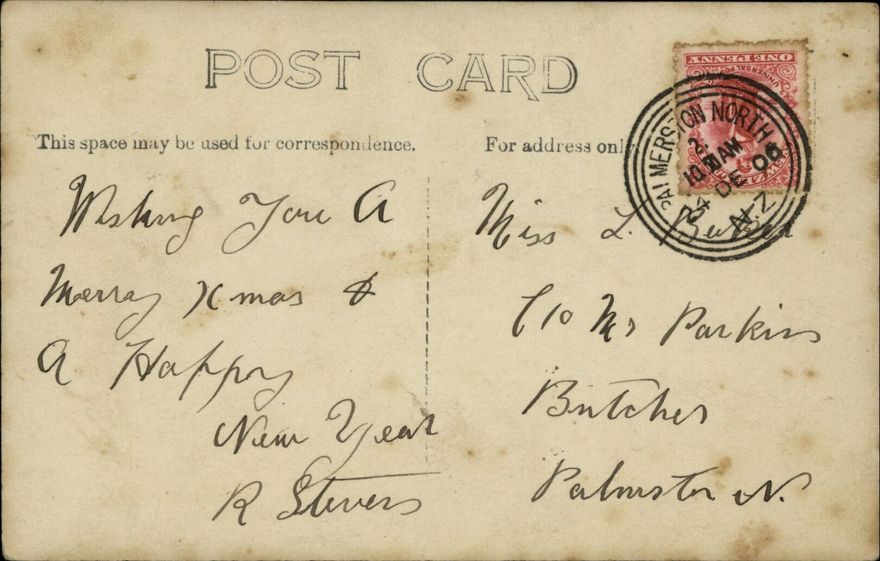 POST CARD
This space may be used for correspondence.
For address only
ONE PENNY
UNIVERSAL
PALMERSTON NORTH
10 AM
24 DE 06
N.Z
Wishing You A
Merray Xmas &
A Happy
New Year
R Stevens
Miss L.
C/o Mr Parkins
Butcher
Palmston N.